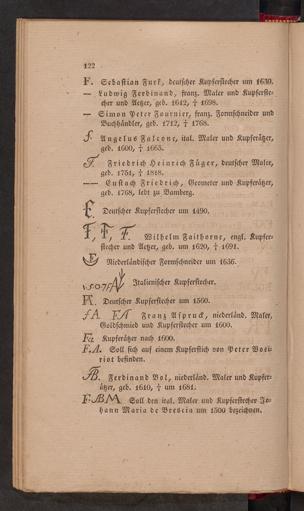 122
F. Sebastian Furk, deutscher Kupferstecher um 1630.
— Ludwig Ferdinand, franz. Maler und Kupferste-
cher und Aetzer, geb. 1612, † 1698.
— Simon Peter Fournier, franz. Formschneider und
Buchhändler, geb. 1712, † 1768.
f. Angelus Falcone, ital. Maler und Kupferätzer,
geb. 1600, † 1665.
F. Friedrich Heinrich Füger, deutscher Maler,
geb. 1751, † 1818.
— Eustach Friedrich, Geometer und Kupferätzer,
geb. 1768, lebt zu Bamberg.
Deutscher Kupferstecher um 1490.
F, F, F. Wilhelm Faithorne, engl. Kupfer-
stecher und Aetzer, geb. um 1620, † 1691.
Niederländischer Formschneider um 1656.
1507 FA Italienischer Kupferstecher.
Deutscher Kupferstecher um 1560.
fA FA Franz Aspruck, niederländ. Maler,
Goldschmied und Kupferstecher um 1600.
Fa Kupferätzer nach 1600.
F.A. Soll sich auf einem Kupferstich von Peter Woei-
riot befinden.
FB. Ferdinand Bol, niederländ. Maler und Kupfer-
ätzer, geb. 1610, † um 1681.
F.BM Soll den ital. Maler und Kupferstecher Jo-
hann Maria de Brescia um 1500 bezeichnen.